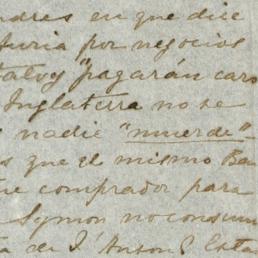 ndres en que dice
turia por negocios
"pagarán car
Inglaterra no se
nadie "muerde"
s que el mismo Ba
ue comprador para
Symon no consum
ta de J' Anson & Esta